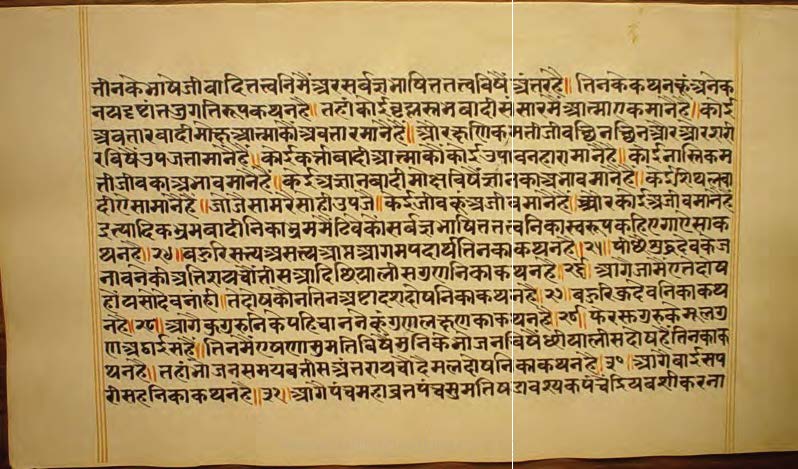 तीनके भाषे जीवादितत्त्वनिमैं अर सर्वज्ञभाषित तत्वविषैं अंतर है॥ तिनके कथनकूं अनेक
नय दृष्टांत जुगतिरूप कथन है॥ तहां कोई ब्रह्म वादी संसारमैं आत्मा एक मानै है॥ कोई
अवतारवादी मोक्ष आत्माकौ अवतार मानै हैं॥ और क्षणिकमती जीव छिन छिन और और शरी
रविषैं उपजता मानै है॥ कोई कर्त्तावादी आत्माकौं कोई उपावनहारा मानै है॥ कोई नास्तिकम
ती जीवका अभाव मानै है॥ केई अज्ञानवादी मोक्षविषैं ज्ञानका अभाव मानै है॥ केई
दी ऐसा मानै है॥ जो जैसा मरै सा ही उपजै॥ केई जीवकूं अजीव मानै है॥ और कोई अजीव मानै है
इत्यादिक भ्रमवादीनिका भ्रम मैटिवेकौं सर्वज्ञभाषित तत्त्वनिका स्वरूप कहिएगा ऐसा क
थन है॥२४॥ बहुरि सत्य असत्य आप्त आगम पदार्थ तिनका कथन है॥२५॥ देवके ज
नावनकी अतिशय चौंतीस आदि छियालीस गुणनिका कथन है॥२६॥ आगै जामैं एते दोष
होंय सो देव नाही॥ ते दोष कौन तिन अष्टादश दोषनिका कथन है॥२७॥ बहुरि कुदेवनिका कथ
न है॥२८॥ आगै कुगुरुनिके पहिचाननेकूं गुण लक्षणका कथन है॥२९॥ फेर सुगुरुके मूलगु
ण अठाईस हैं॥ तिनमैं एषणा सुमतिविषैं मुनिके भोजनविषैं छीयालीस दोष हैं तिनका क
थन है॥ तहां भोजन समय बत्तीस अंतराय चौदै मल दोषनिका कथन है॥३०॥ आगै बाईस प
रीसहनिका कथन है॥३१॥ आगै पंच महाव्रत पंच सुमति षडावश्यक पंचेंद्रिय वशीकरना